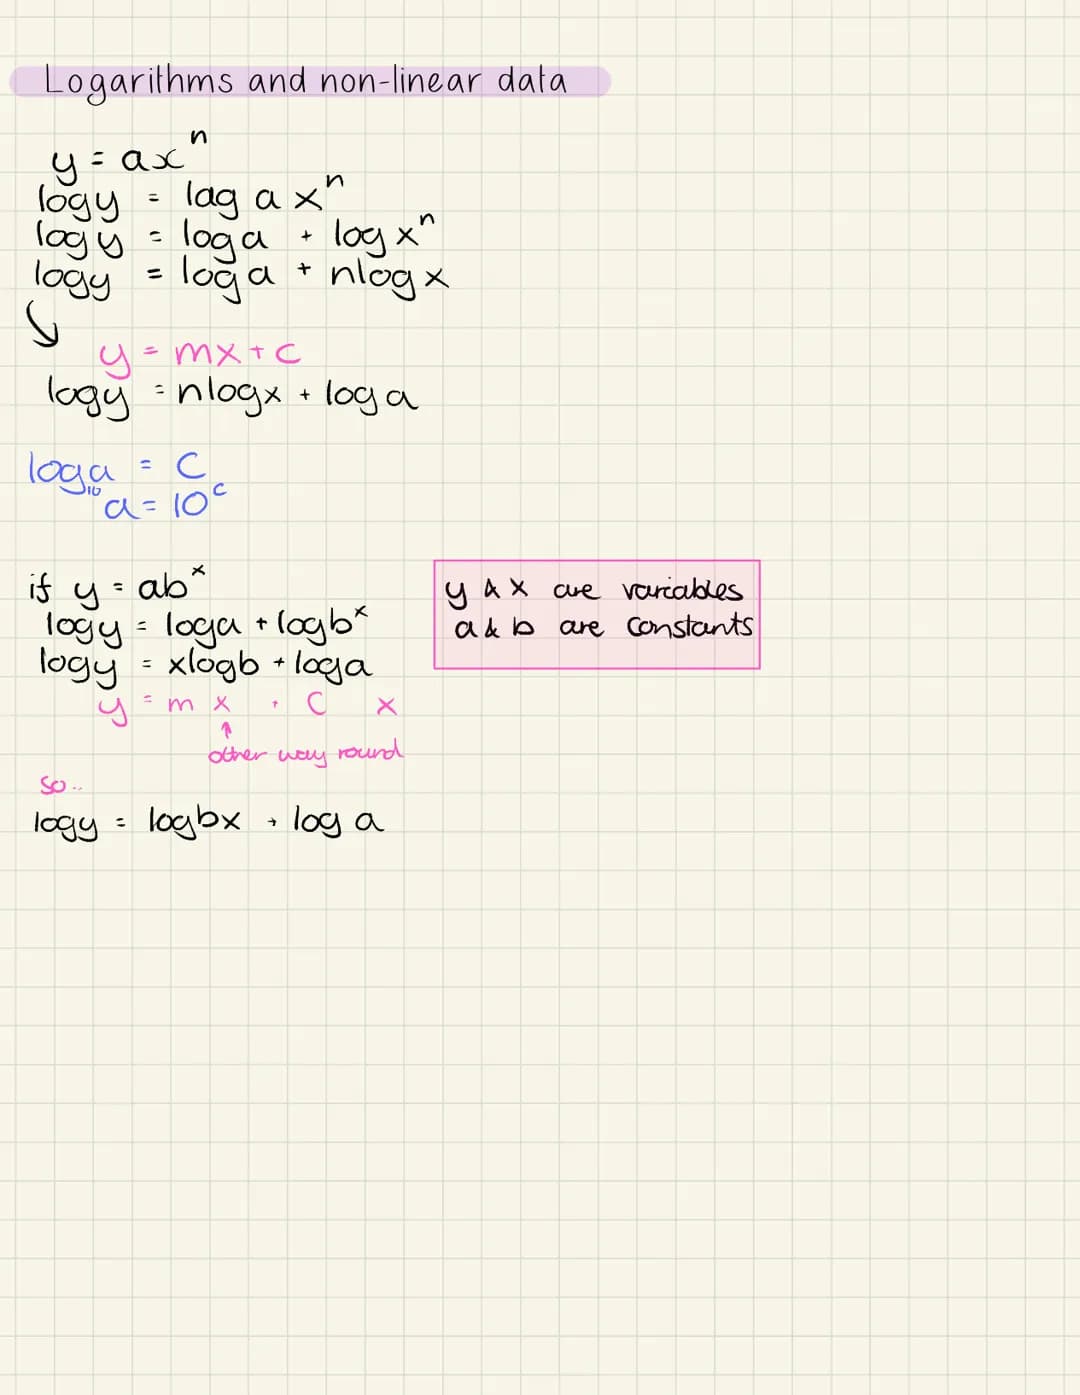 Logarithms and non-linear data
y = axⁿ
logy = lag a xⁿ
logy = loga + log xⁿ
logy = loga + nlogx
y = mx + c
logy = nlogx + loga
log₁₀a = C
a = 10ᶜ
if y = abˣ
logy = loga + logbˣ
logy = xlogb + loga
y = m x + C x
↑
other way round
so..
logy = logbx + log a
y & x are variables
a & b are constants